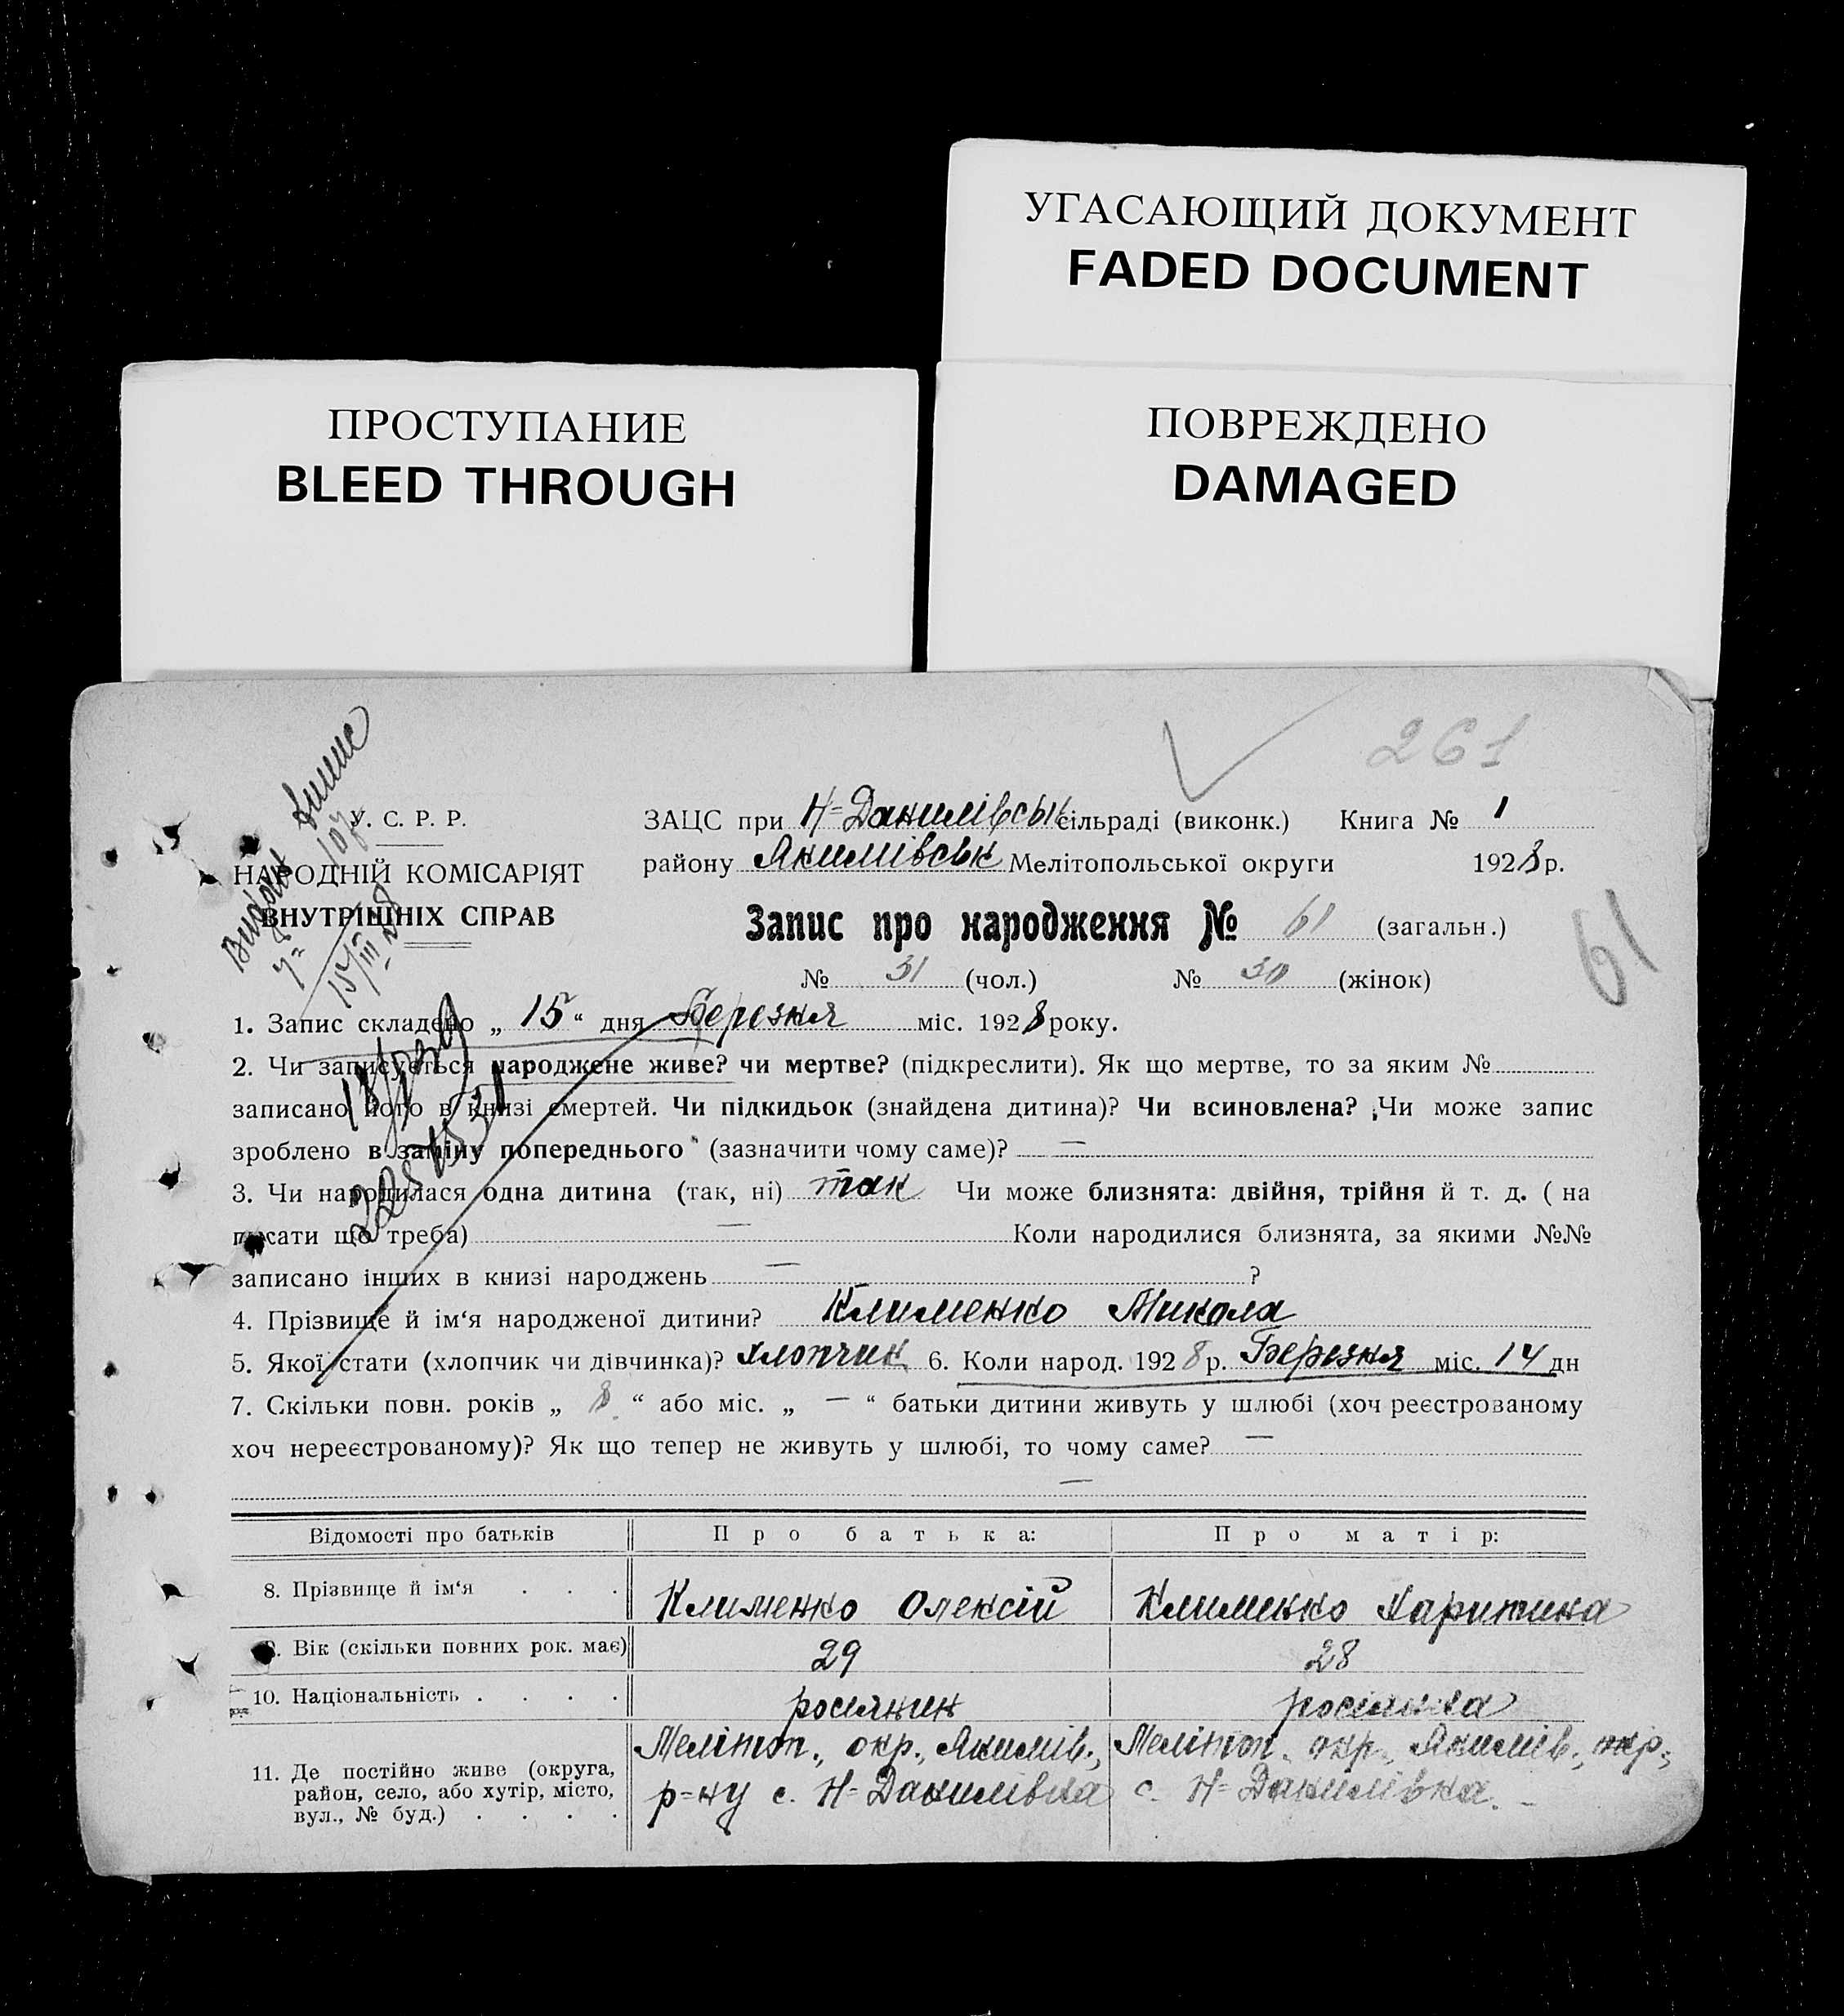 УГАСАЮЩИЙ ДОКУМЕНТ
FADED DOCUMENT
ПРОСТУПАНИЕ
BLEED THROUGH
ПОВРЕЖДЕНО
DAMAGED
261
У. С. Р. Р.
НАРОДНІЙ КОМІСАРІЯТ
ВНУТРІШНІХ СПРАВ
ЗАЦС при Н=Данилівськ сільраді (виконк.) Книга № 1
району Якимівськ Мелітопольської округи 1928 р.
Запис про народження № 61 (загальн.)
61
№ 31 (чол.) № 30 (жінок)
1. Запис складено „ 15 “ дня Березня міс. 1928 року.
2. Чи записується народжене живе? чи мертве? (підкреслити). Як що мертве, то за яким №
записано його в книзі смертей. Чи підкидьок (знайдена дитина)? Чи всиновлена? Чи може запис
зроблено в заміну попереднього (зазначити чому саме)? —
3. Чи народилася одна дитина (так, ні) так Чи може близнята: двійня, трійня й т. д. ( на
писати що треба) — Коли народилися близнята, за якими №№
записано інших в книзі народжень — ?
4. Прізвище й ім‘я народженої дитини? Клименко Микола
5. Якої стати (хлопчик чи дівчинка)? хлопчик 6. Коли народ. 1928 р. Березня міс. 14 дн
7. Скільки повн. років „ 8 “ або міс. „ — “ батьки дитини живуть у шлюбі (хоч реєстрованому
хоч нереєстрованому)? Як що тепер не живуть у шлюбі, то чому саме? —
—
Відомості про батьків П р о б а т ь к а: П р о м а т і р:
8. Прізвище й ім‘я . . . Клименко Олексій Клименко Харитина
9. Вік (скільки повних рок. має) 29 28
10. Національність . . . . росіянин росіянка
11. Де постійно живе (округа, район, село, або хутір, місто, вул., № буд.) . . . .
Мелітоп., окр., Якимів., Мелітоп. окр., Якимів., окр.,
р=ну с. Н=Данилівка с. Н=Данилівка. -